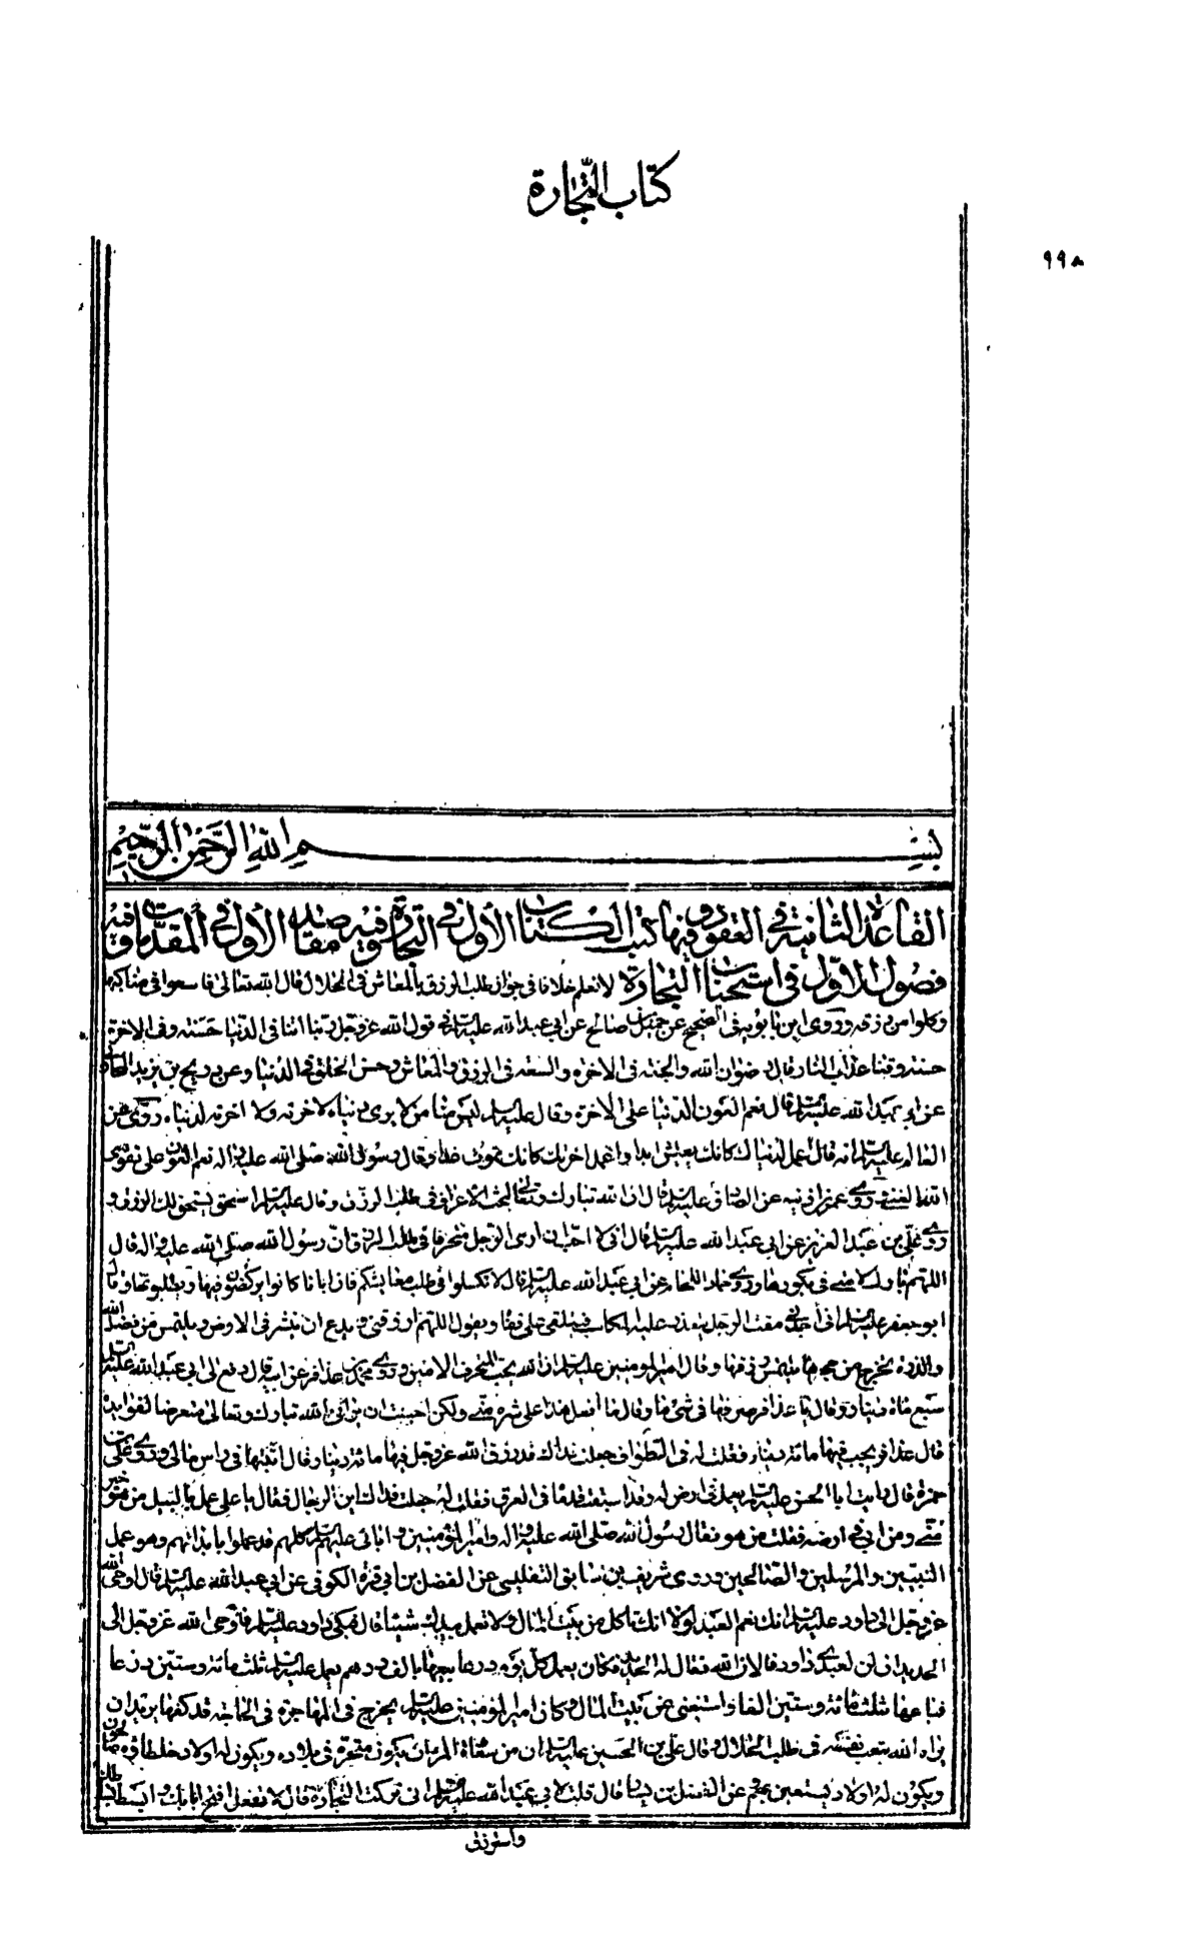 كتاب التجارة
٩٩٨
بسم الله الرحمن الرحيم
القاعدة الثانية في العقود وفيها كتب الكتاب الأول في التجارة وفيه مقاصد الأول في المقدمات وفيه
فصول الاول في استحباب التجارة لا نعلم خلافا في جواز طلب الرزق بالمعاش في الحلال قال الله تعالى فاسعوا في مناكبها
وكلوا من رزقه وروى ابن بابويه في الصحيح عن جميل بن صالح عن ابي عبد الله عليه السلام في قول الله عز وجل ربنا اتنا في الدنيا حسنة وفي الاخرة
حسنة وقنا عذاب النار قال رضوان الله والجنة في الاخرة والسعة في الرزق والمعاش وحسن الخلق في الدنيا وعن ذريح بن يزيد المحاربي
عن ابي عبد الله عليه السلام قال نعم العون الدنيا على الاخرة وقال عليه السلام ليس منا من لا يرى دنياه لاخرته ولا اخرته لدنياه وروى عن
العالم عليه السلام انه قال اعمل لدنياك كانك تعيش ابدا واعمل لاخرتك كانك تموت غدا وقال رسول الله صلى الله عليه واله نعم العون على تقوى
الله الغنى وروى عمر بن اذينه عن الصادق عليه السلام قال ان الله تبارك وتعالى يحب الاغتراب في طلب الرزق وقال عليه السلام اشخص يشخص لك الرزق و
روى علي بن عبد العزيز عن ابي عبد الله عليه السلام قال اني لا احب ان ارى الرجل متحرفا في طلب الرزق ان رسول الله صلى الله عليه واله قال
اللهم بارك لامتي في بكورها وروى حماد اللحام عن ابي عبد الله عليه السلام قال لا تكسلوا في طلب معايشكم فان ابانا كانوا يركضون فيها ويطلبونها وقال
ابو جعفر عليه السلام اني امقت الرجل يتعذر عليه المكاسب فيستلقي على قفاه ويقول اللهم ارزقني ويدع ان ينتشر في الارض ويلتمس من فضل الله
والذرة تخرج من جحرها تلتمس رزقها وقال امير المؤمنين عليه السلام ان الله يحب المحترف الامين وروى محمد بن عذافر عن ابيه قال دفع الي ابي عبد الله عليه السلام
سبع مائة دينار وقال يا عذافر اصرفها في شيء ما وقال ما افعل هذا على شره مني ولكن احببت ان يراني الله تبارك وتعالى متعرضا لفوائده
قال عذافر فربحت فيها مائة دينار فقلت له في الطواف جعلت فداك قد رزق الله عز وجل فيها مائة دينار قال اثبتها في راس مالي وروى علي بن
حمزة قال رايت ابا الحسن عليه السلام يعمل في ارض له وقد استنقعت قدماه في العرق فقلت له جعلت فداك اين الرجال فقال يا علي عمل باليد من هو خير
مني ومن ابي في ارضه فقلت من هو فقال رسول الله صلى الله عليه واله وامير المؤمنين وابائي عليهم السلام كلهم قد عملوا بايديهم وهو عمل
النبيين والمرسلين والصالحين وروى شريف بن سابق التفليسي عن الفضل بن ابي قرة الكوفي عن ابي عبد الله عليه السلام قال اوحى الله
عز وجل الى داود عليه السلام انك نعم العبد لولا انك تاكل من بيت المال ولا تعمل بيدك شيئا قال فبكى داود عليه السلام فاوحى الله عز وجل الى
الحديد ان لن لعبدي داود فالان الله تعالى له الحديد فكان يعمل كل يوم درعا يبيعها بالف درهم فعمل عليه السلام ثلث مائة وستين درعا
فباعها بثلث مائة وستين الفا واستغنى عن بيت المال وكان امير المؤمنين عليه السلام يخرج في الهاجرة في الحاجة قد كفيها يريد ان
يراه الله يتعب نفسه في طلب الحلال وقال علي بن الحسين عليه السلام ان من سعادة المرء ان يكون متجره في بلاده ويكون له اولاد خلطاؤه صالحون
ويكون له اولاد يستعين بهم عن الفضل بن يسار قال قلت لابي عبد الله عليه السلام اني تركت التجارة قال لا تفعل افتح بابك وابسط بساطك
واسترزق